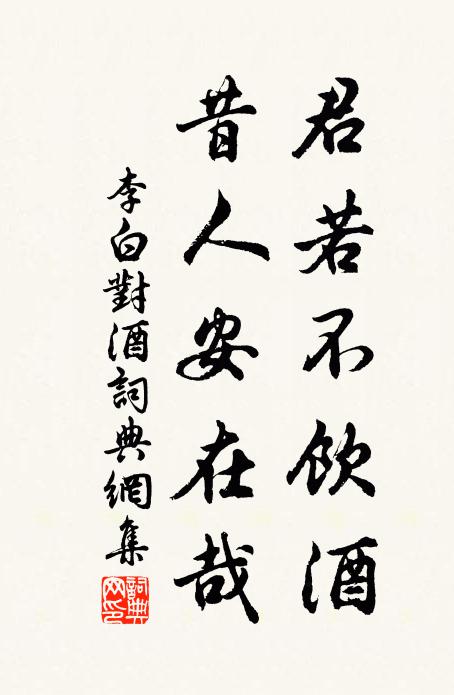 君若不飲酒
昔人安在哉
李白對酒詞典網集
詞典網印